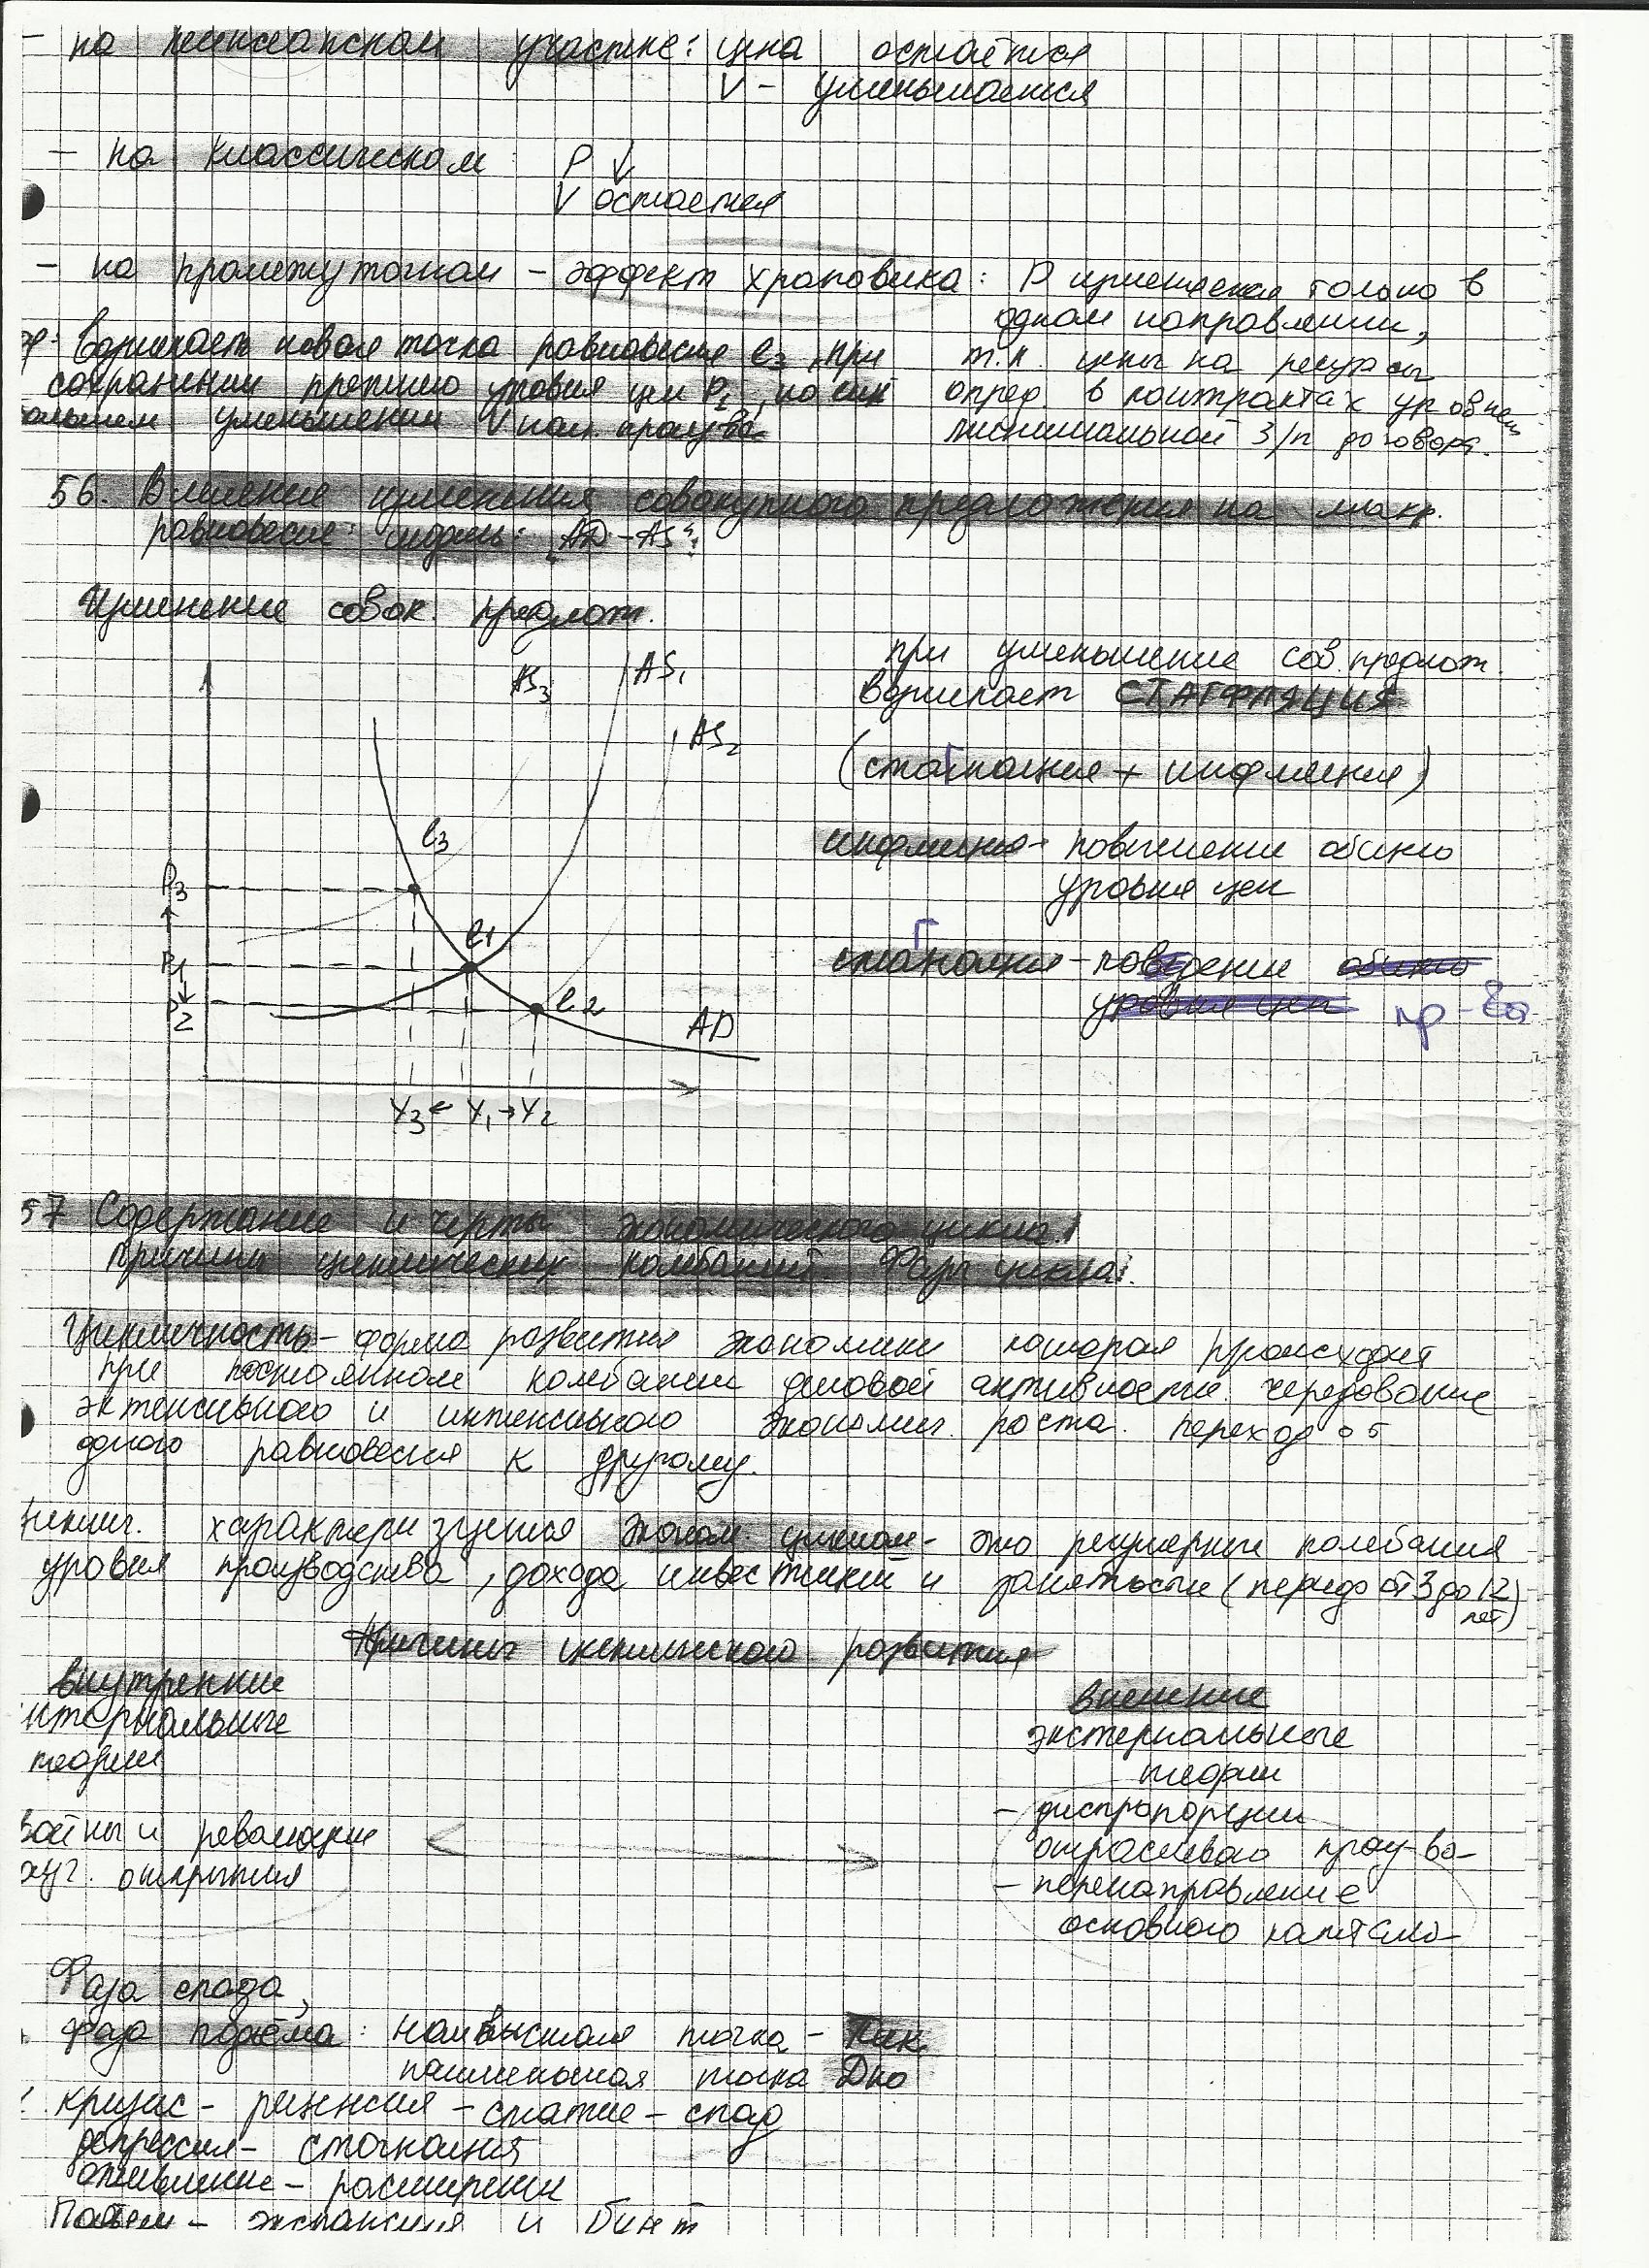 – на кейнсианском участке: цена остаётся
V – уменьшается
– на классическом: P ↓
V остается
– на промежуточном – эффект храповика: P изменяется только в
одном направлении,
т.к. цены на ресурсы
опред. в контрактах уровнем
минимальной з/п договора.
Возникает новая точка равновесия e3, при
сохранении прежнего уровня цен P1, но
уменьшении V нац. произ-ва
56. Влияние изменения совокупного предложения на макр.
равновесие: модель: „AD – AS".
Изменение совок. предлож.
AS3
AS1
AS2
e3
P3
e1
P1
P2
e2
AD
Y3 ← Y1 → Y2
при уменьшение сов. предлож.
возникает СТАГФЛЯЦИЯ
(стагнация + инфляция)
инфляция – повышение общего
уровня цен
стагнация – поведение общего
уровня цен пр-ва
57 Содержание и черты экономического цикла.
Причины циклических колебаний. Фазы цикла.
Цикличность – форма развития экономики которая происходит
при постоянном колебании деловой активности. чередование
экстенсивного и интенсивного экономич. роста. переход от
одного равновесия к другому.
характеризуется эконом. циклом – это регулярные колебания
уровня производства, дохода инвестиций и занятости (период от 3 до 12
лет)
Причины циклического развития
внутренние
интернальные
теории
войны и революции
открытия
внешние
экстернальные
теории
– диспропорции
отраслевого произ-ва
– перенаправление
основного капитала
Фаза спада,
фаза подъёма: наивысшая точка – Пик
наименьшая точка Дно
кризис – рецессия – сжатие – спад
депрессия – стагнация
оживление – расширение
Подъем – экспансия и бум